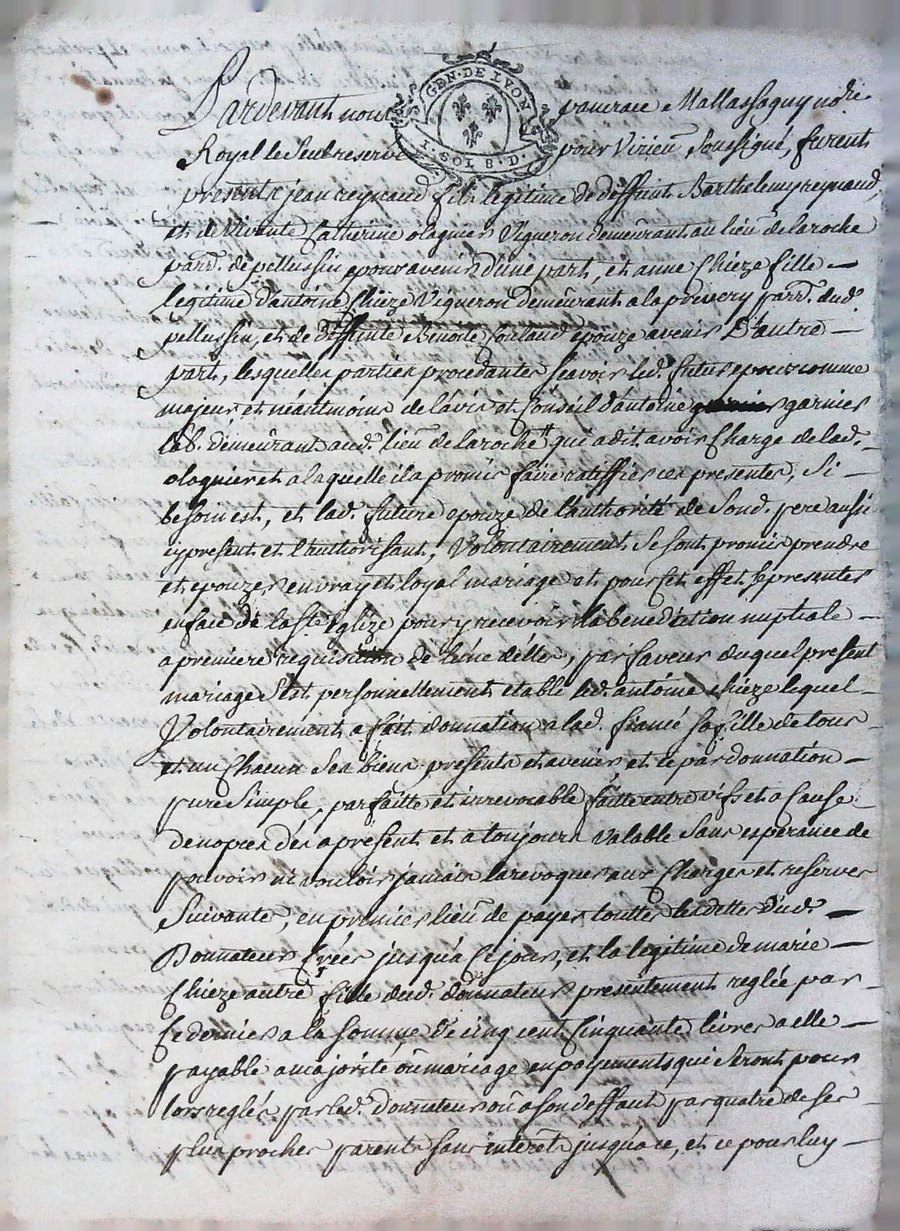 GEN. DE LYON
1. SOL 8. D.
Pardevant nous pancrace Mallassagny no.re
Royal le Seul reservé pour Virieu Soussigné, furent
presents jean reynaud fils legitime de deffunt Barthelemy reynaud,
et de Vivante Catherine olagnier Vigneron demeurant au lieu de laroche
parr. de pellussin epoux avenir d'une part, et anne Chieze fille —
legitime d'antoine Chieze Vigneron demeurant a la parr. dud.
pellussin, et de Deffunte Benoite epouze avenir D'autre —
part, lesquelles parties procedantes sçavoir led. futur epoux comme
majeur et néantmoins de l'avis et Conseil d'antoine garnier
lab. demeurant aud. lieu de laroche qui a dit avoir Charge de lad.
olagnier et a laquelle il a promis faire ratiffier ces presentes, Si —
besoin est, et lad. future epouze de l'authorité de Sond. pere aussi
cy present et l'authorisant, Volontairement se sont promis prendre
et epouzer en vray et loyal mariage et pour Cet effet se presenter
en face de la Ste. Eglize pour y recevoir la benediction nuptiale —
a premiere requisition de l'un d'elles, par faveur duquel present
mariage s'est personnellement etabli led. antoine chieze lequel —
Volontairement a fait donnation a lad. fiancé sa fille de tous
et un Chacun Ses biens presents et avenir et ce par donnation —
pure Simple, parfaitte et irrevocable faitte entre vifs et a Cause
de nopces dés a present et a toujours valable Sans esperance de
pouvoir ni vouloir jamais la revoquer aux Charges et reserves
Suivantes, en premier lieu de payer touttes les dettes dud. —
Donnateur Créés jusqu'a Ce jour, et la legitime de marie —
Chieze autre fille dud. donnateur presentement reglée par —
Ce dernier a la somme de cinq cent Cinquante livres a elle —
payable a majorité ou mariage en payements qui Seront pour
lors reglés par led. donnateur ou a son deffaut par quatre de ses
plus proches parents sans interets jusqu'a ce, et ce pour luy —